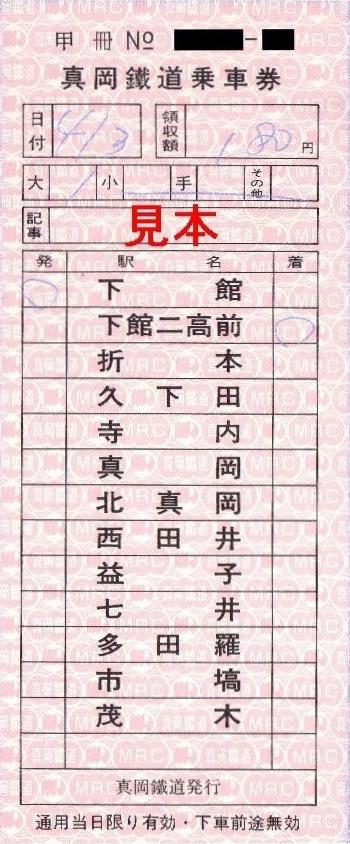 甲 冊 No -
真岡鐵道乗車券
日付 4/3 領収額 180円
大 1 小 手 その他
記事 見本
発 駅名 着
下館
下館二高前
折本
久下田
寺内
真岡
北真岡
西田井
益子
七井
多田羅
市塙
茂木
真岡鐵道発行
通用当日限り有効・下車前途無効